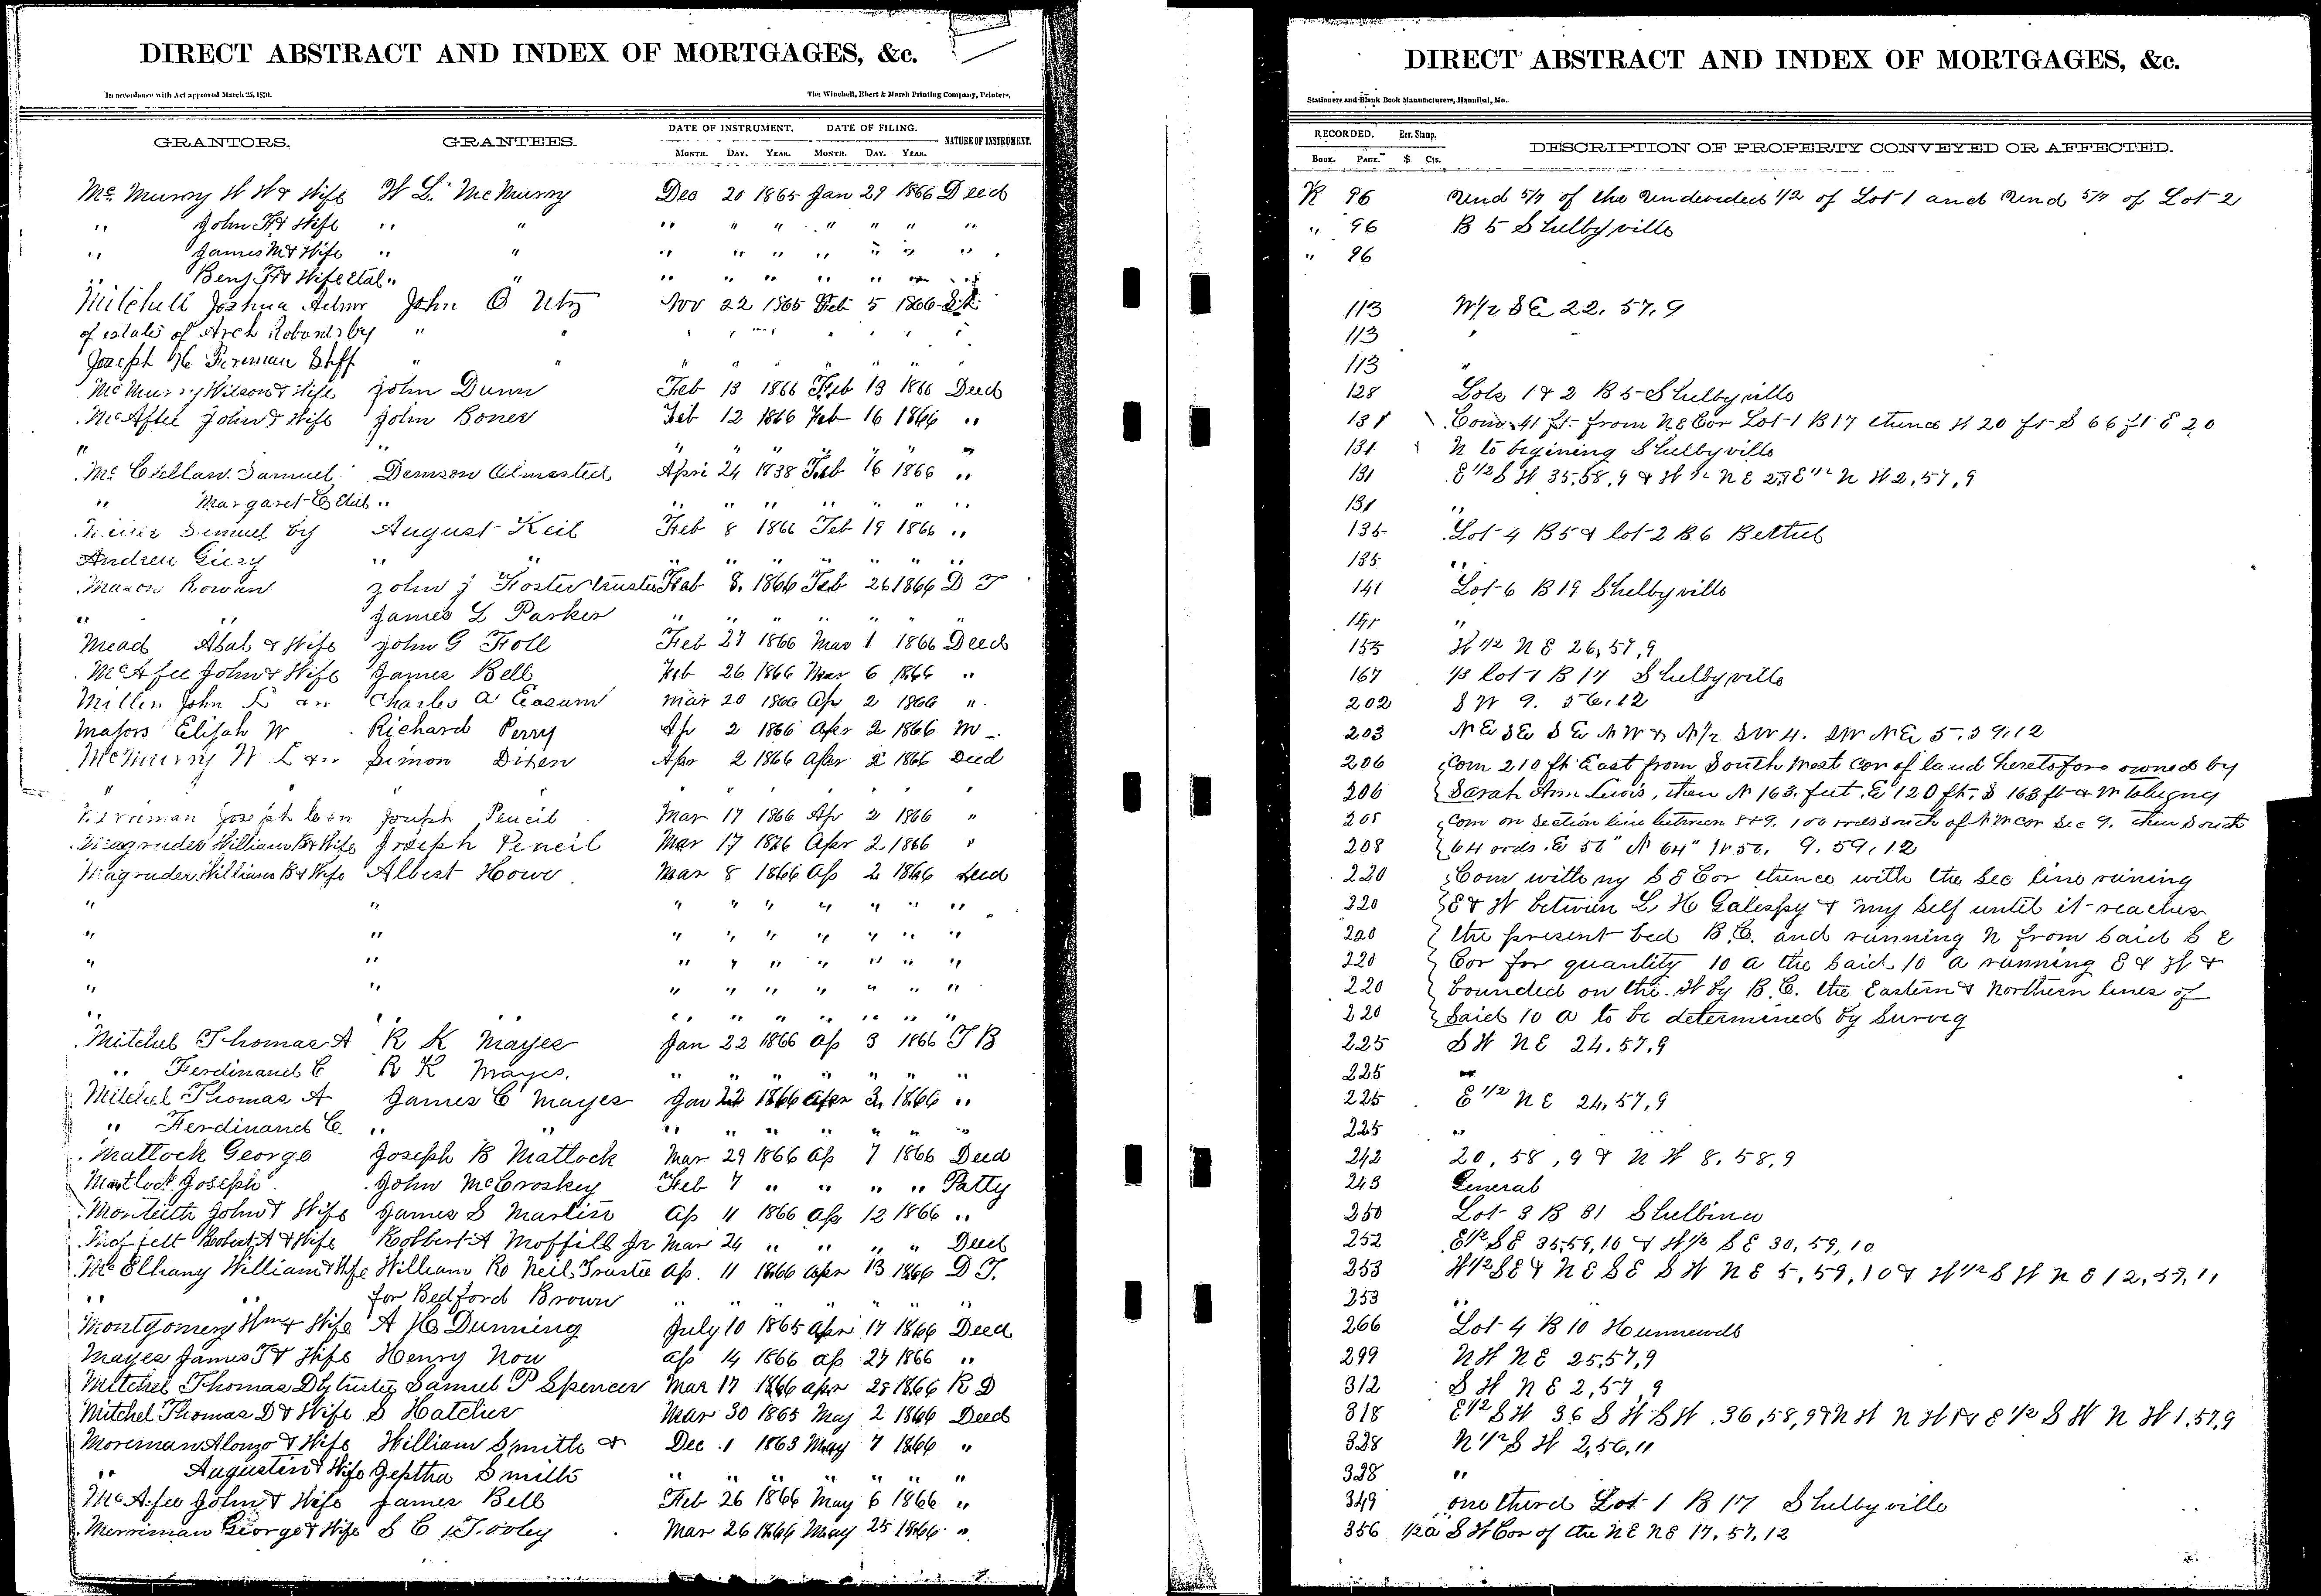 DIRECT ABSTRACT AND INDEX OF MORTGAGES, &c.
In accordance with Act approved March 25, 1870.
The Winchell, Ebert & Marsh Printing Company, Printers,
GRANTORS. GRANTEES. DATE OF INSTRUMENT. DATE OF FILING. NATURE OF INSTRUMENT.
MONTH. DAY. YEAR. MONTH. DAY. YEAR.
Mc Murry W W & Wife W L. McMurry Dec 20 1865 Jan 29 1866 Deed
" John H & Wife " " " " " " " " "
" James M & Wife " " " " " " " " "
" Benj F & Wife Etal " " " " " " " " "
Mitchell Joshua Admr John O Utz Nov 22 1865 Feb 5 1866
of estate of Arch Robards by " " " " " " " " "
Joseph H Foreman Shff " " " " " " " " "
McMurry Wilson & Wife John Dunn Feb 13 1866 Feb 13 1866 Deed
McAftee John & Wife John Boner Feb 12 1866 Feb 16 1866 "
" " " " " " " "
Mc Clellan Samuel Denison Olmasted Apri 24 1838 Feb 16 1866 "
" Margaret C Etal " " " " " " " "
Samuel by August Keil Feb 8 1866 Feb 19 1866 "
Andrew Giesy " " " " " " " " "
Mason Rowan John J Foster trustee Feb 8. 1866 Feb 26 1866 D T
" " James L Parker " " " " " " "
Mead Asal & Wife John G Foll Feb 27 1866 Mar 1 1866 Deed
McAfee John & Wife James Bell Feb 26 1866 Mar 6 1866 "
Miller John L Charles A Easum Mar 20 1866 Ap 2 1866 "
Majors Elijah W Richard Perry Ap 2 1866 Apr 2 1866 M
McMurry W L Simon Dixen Apr 2 1866 Apr 2 1866 Deed
" " " " " " "
Joseph Joseph Pencil Mar 17 1866 Ap 2 1866 "
Magruder William B & Wife Joseph Pencil Mar 17 1866 Apr 2 1866 "
Magruder William B & Wife Albert Howe Mar 8 1866 Ap 2 1866 Deed
" " " " " " " " "
" " " " " " " " "
" " " " " " " " "
" " " " " " " " "
" " " " " " " " " "
Mitchel Thomas A R K Mayes Jan 22 1866 Ap 3 1866 T B
" Ferdinand C R K Mayes. " " " " " " "
Mitchel Thomas A James C Mayes Jan 22 1866 Apr 3 1866 "
" Ferdinand C. " " " " " " " " "
Mattock George Joseph B Mattock Mar 29 1866 Ap 7 1866 Deed
Matlock Joseph John McCroskey Feb 7 " " " " Patty
Monteith John & Wife James S Martin Ap 11 1866 Ap 12 1866 "
Moffett Robert A & Wife Robert A Moffett Jr Mar 24 " " " " Deed
Mc Elhany William & Wife William Ro Neil Trustee Ap. 11 1866 Apr 13 1866 D T.
" " for Bedford Brown " " " " " " "
Montgomery Wm & Wife A H Dunning July 10 1865 Apr 17 1866 Deed
Mayes James T & Wife Henry Nou Ap 14 1866 Ap 27 1866 "
Mitchel Thomas D by trustee Samuel P Spencer Mar 17 1866 Apr 28 1866 R D
Mitchel Thomas D & Wife S Hatcher Mar 30 1865 May 2 1866 Deed
Moreman Alonzo & Wife William Smith & Dec 1 1863 May 7 1866 "
" Augustin & Wife Jeptha Smith " " " " " " "
McAfee John & Wife James Bell Feb 26 1866 May 6 1866 "
Merriman George & Wife S C Tooley Mar 26 1866 May 25 1866 "
DIRECT ABSTRACT AND INDEX OF MORTGAGES, &c.
Stationers and Blank Book Manufacturers, Hannibal, Mo.
RECORDED. Rev. Stamp. DESCRIPTION OF PROPERTY CONVEYED OR AFFECTED.
BOOK. PAGE. $ Cts.
R 96 Und 5/7 of the Undevided 1/2 of Lot 1 and Und 5/7 of Lot 2
" 96 B 5 Shelbyville
" 96
113 W/2 SE 22. 57. 9
113 "
113 "
128 Lots 1 & 2 B 5 Shelbyville
131 Com 41 ft from NE Cor Lot 1 B 17 thence W 20 ft S 66 ft E 20
131 N to begining Shelbyville
131 E 1/2 S W 35, 58, 9 & W 1/2 N E 2 & E 1/2 N W 2, 57, 9
131 "
135 Lot 4 B 5 & lot 2 B 6 Bethel
135 "
141 Lot 6 B 19 Shelbyville
141 "
155 W 1/2 N E 26, 57, 9
167 1/3 lot 1 B 17 Shelbyville
202 S W 9. 56, 12
203 NE SE SE NW & N/2 SW 4. SW NE 5. 59, 12
206 Com 210 ft East from South West cor of land heretofore owned by
206 Sarah Ann Lewis, then N 163 feet. E 120 ft, S 163 ft & W to begng
208 Com on Section line between 8 & 9. 100 rods south of N W cor Sec 9. then South
208 64 rods. E 56 " N 64 " W 56. 9. 59, 12
220 Com with my S E Cor thence with the sec line runing
220 E & W between L H Galespy & my self until it reaches
220 the present bed B. C. and running N from said S E
220 Cor for quantity 10 a the said 10 a running E & W &
220 bounded on the W by B. C. the Eastern & Northern lines of
220 Said 10 a to be determined by Survey
225 S W N E 24. 57. 9
225 "
225 E 1/2 N E 24, 57, 9
225 "
242 20, 58, 9 & N W 8, 58, 9
243 General
250 Lot 3 B 31 Shelbina
252 E 1/2 SE 35, 59, 10 & W 1/2 S E 30, 59, 10
253 W 1/2 SE & N E SE S W N E 5, 59, 10 & W 1/2 S W N E 12, 59, 11
253 "
266 Lot 4 B 10 Hunnewell
299 N W N E 25, 57, 9
312 S W N E 2, 57, 9
318 E 1/2 S W 36 S W S W 36, 58, 9 & N W N W 1 & E 1/2 S W N W 1, 57, 9
328 N 1/2 S W 2, 56, 11
328 "
349 one third Lot 1 B 17 Shelbyville
356 1/2 a S W Cor of the N E N E 17, 57, 12